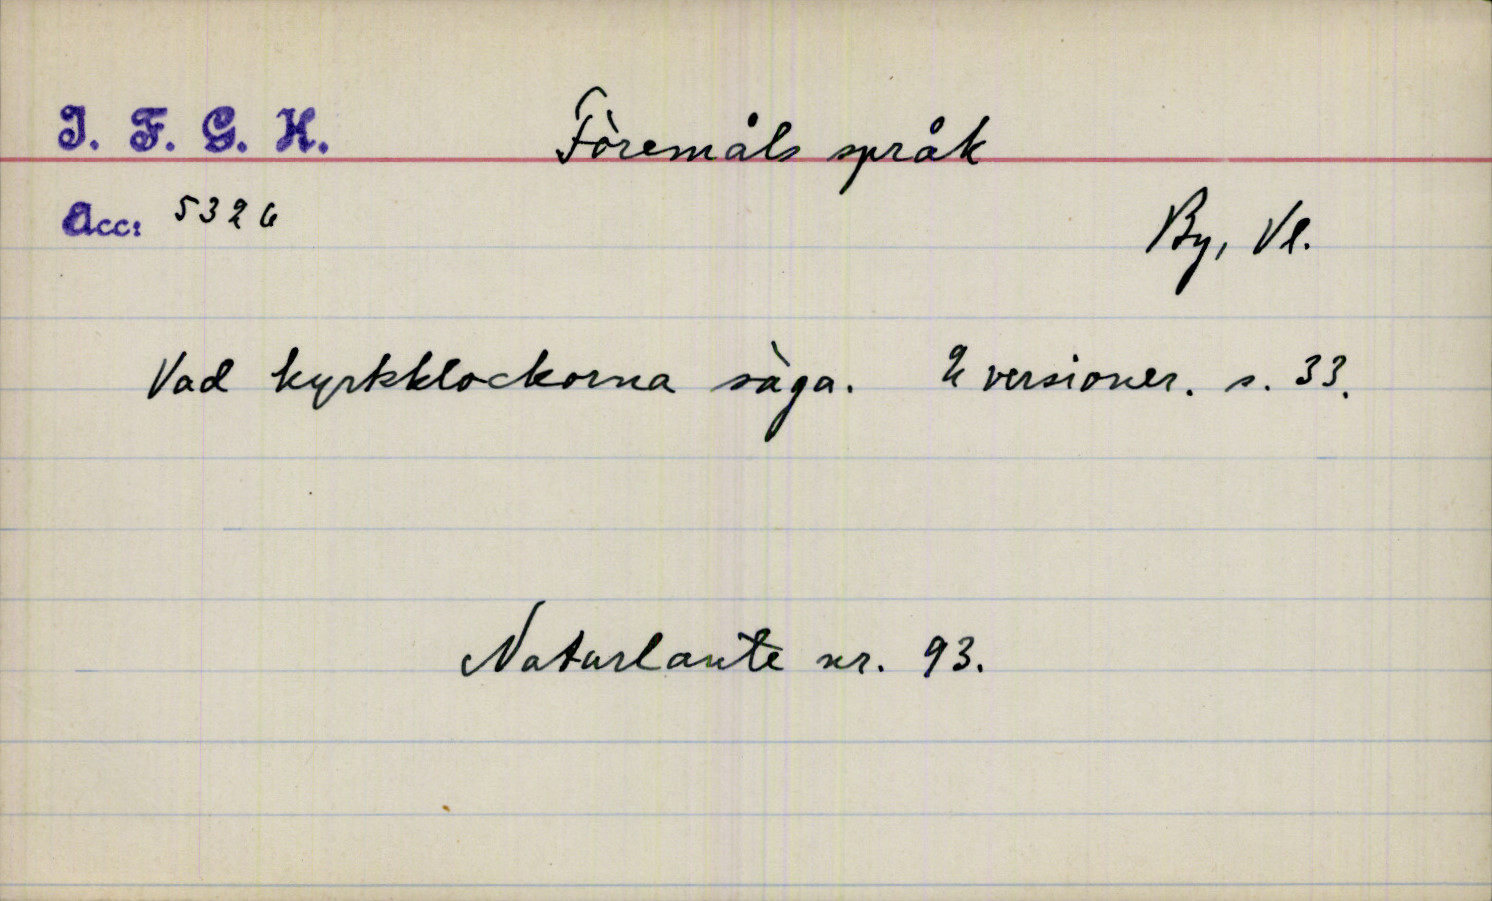 I. F. G. H. Föremåls språk
Acc: 5326
By, Vl.
Vad kyrkklockorna säga. 2 versioner. s. 33.
Naturlaute nr. 93.